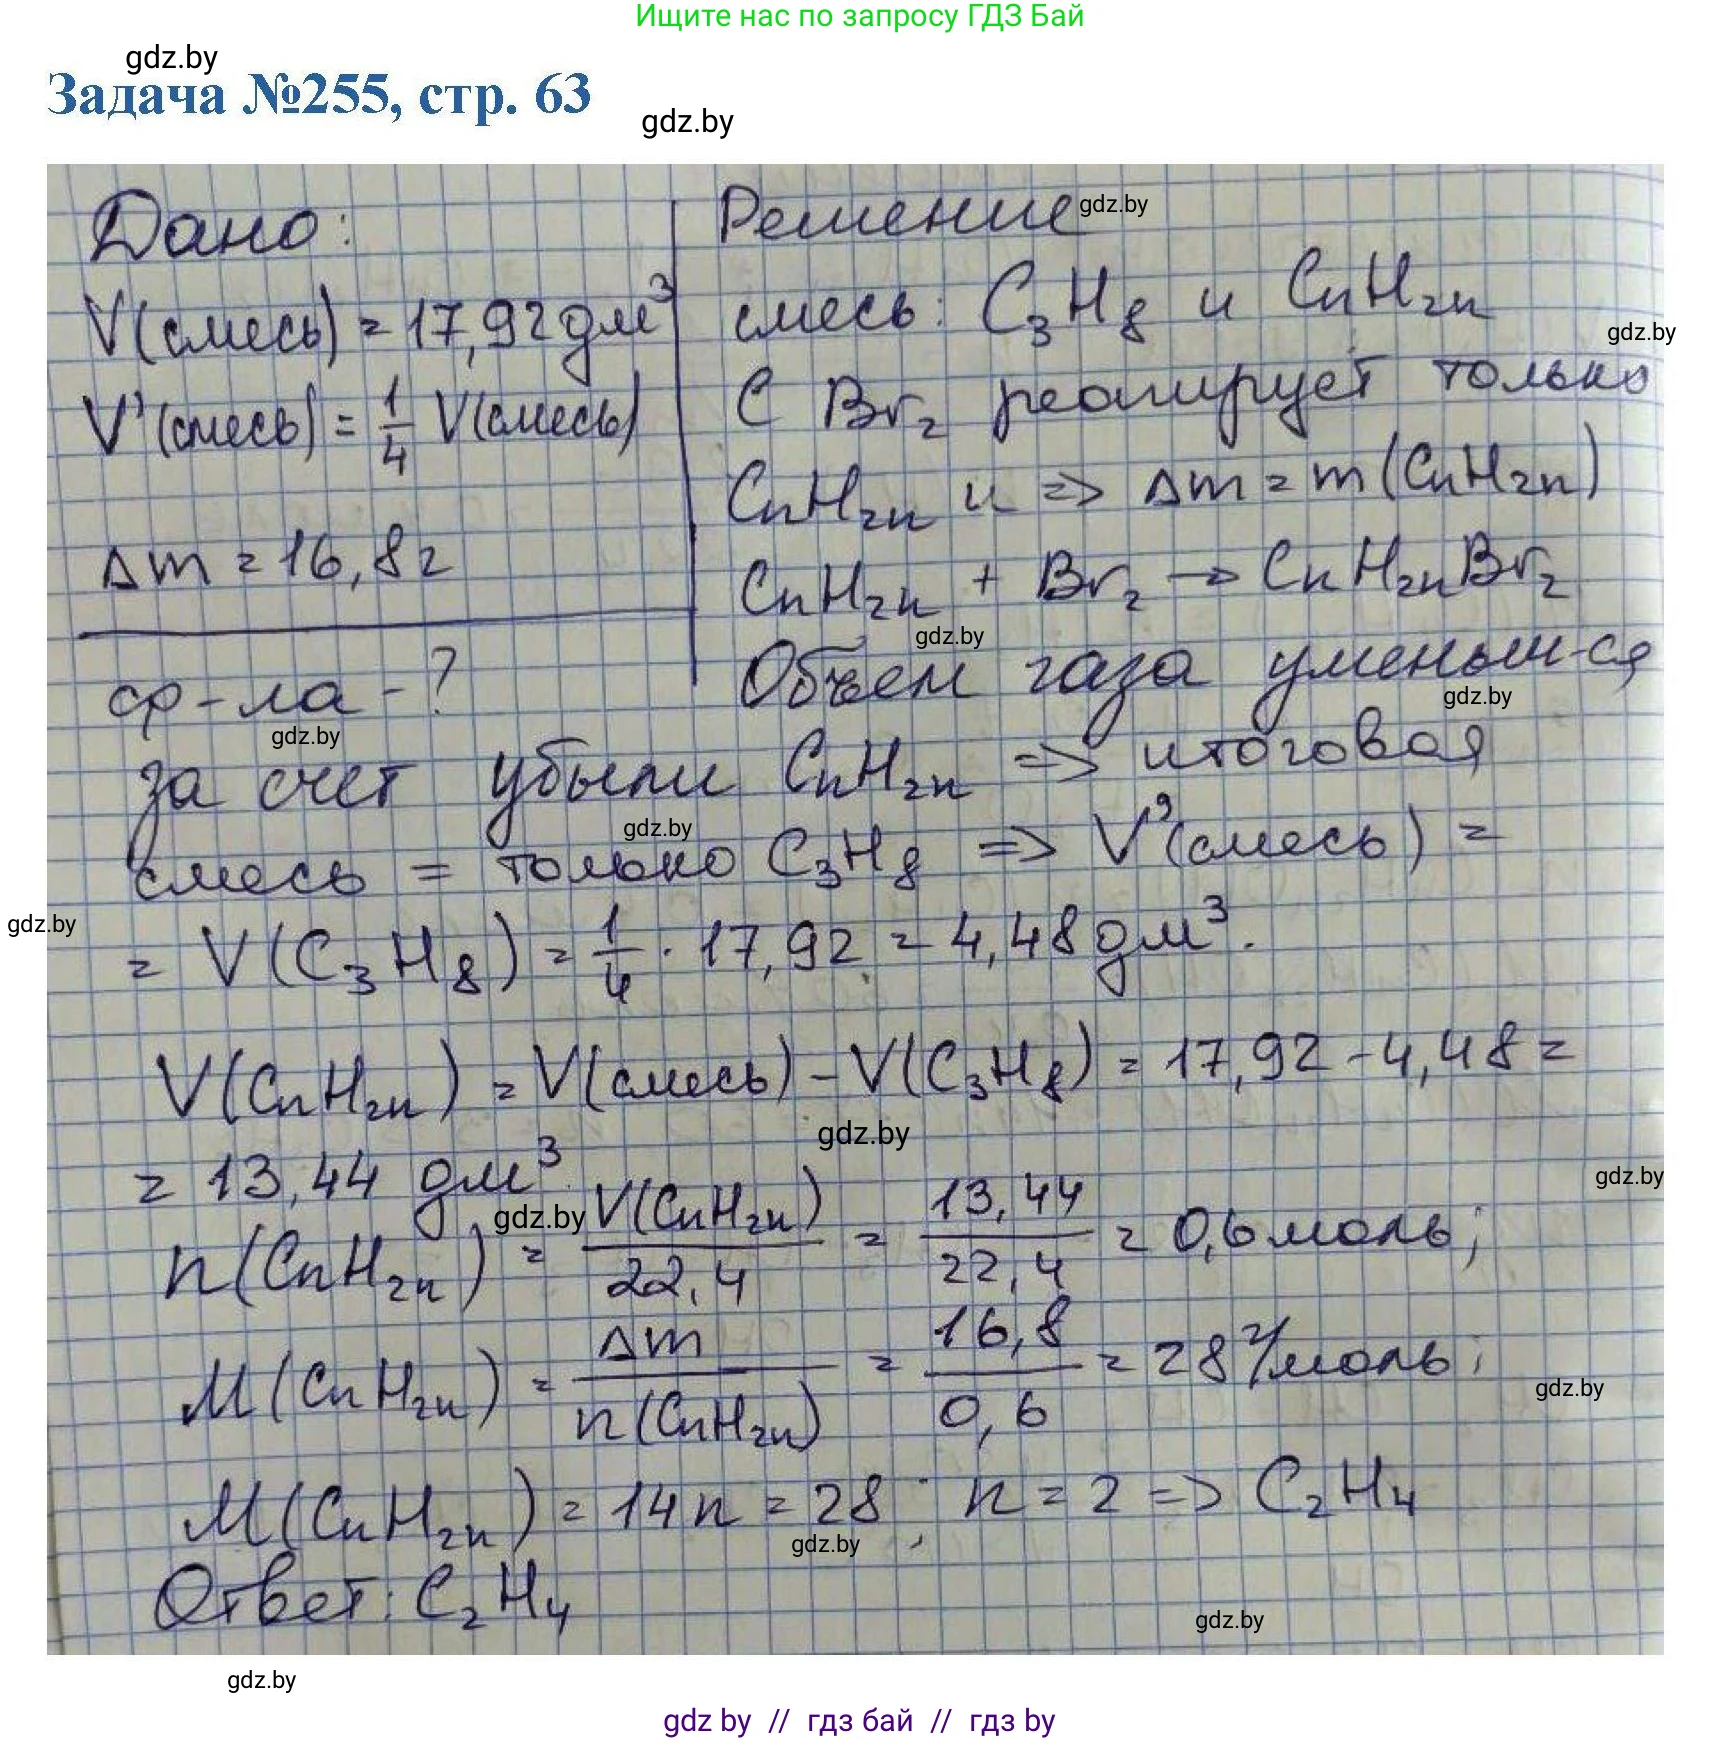 Ищите нас по запросу ГДЗ Бай
gdz.by
Задача №255, стр. 63
gdz.by
Дано:
V(смесь) = 17,92 дм³
V'(смесь) = 1/4 V(смесь)
Δm = 16,8 г
ф-ла - ?
gdz.by
Решение gdz.by
смесь: C₃H₈ и CnH₂n
gdz.by
С Br₂ реагирует только
CnH₂n и => Δm = m(CnH₂n)
CnH₂n + Br₂ → CnH₂nBr₂
gdz.by
Объем газа уменьш-ся
gdz.by
за счет убыли CnH₂n => итоговая
gdz.by
смесь = только C₃H₈ => V'(смесь) =
gdz.by
= V(C₃H₈) = 1/4 · 17,92 = 4,48 дм³.
V(CnH₂n) = V(смесь) - V(C₃H₈) = 17,92 - 4,48 =
gdz.by
= 13,44 дм³
gdz.by
gdz.by
n(CnH₂n) = V(CnH₂n)/22,4 = 13,44/22,4 = 0,6 моль;
M(CnH₂n) = Δm/n(CnH₂n) = 16,8/0,6 = 28 г/моль;
gdz.by
M(CnH₂n) = 14n = 28; n = 2 => C₂H₄
gdz.by
Ответ: C₂H₄
gdz.by
gdz.by
gdz by // гдз бай // гдз by